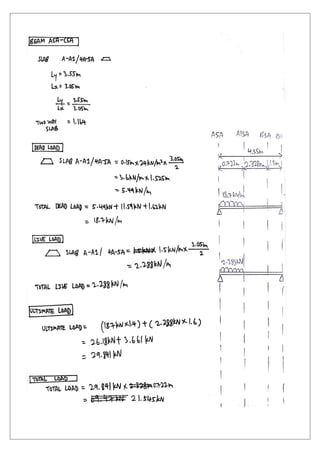 BEAM A5A-C5A
SLAB A-A1/4A-5A
Ly = 3.55m
Lx = 3.05m
Ly/Lx = 3.55m/3.05m
TWO WAY SLAB = 1.164
DEAD LOAD
SLAB A-A1/4A-5A = 0.15m x 24kN/m³ x 3.05m/2
= 3.6kN/m x 1.525m
= 5.49kN/m
TOTAL DEAD LOAD = 5.49kN + 11.59kN + 1.62kN
= 18.7kN/m
LIVE LOAD
SLAB A-A1/ 4A-5A = 1.5kN/m x 3.05m/2
= 2.288kN/m
TOTAL LIVE LOAD = 2.288kN/m
ULTIMATE LOAD
ULTIMATE LOAD = (18.7kN x 1.4) + (2.288kN x 1.6)
= 26.18kN + 3.661kN
= 29.841kN
TOTAL LOAD
TOTAL LOAD = 29.841kN x 0.722m
= 21.545kN
A5A
4.35m
0.722m
18.7kN/m
2.288kN/m